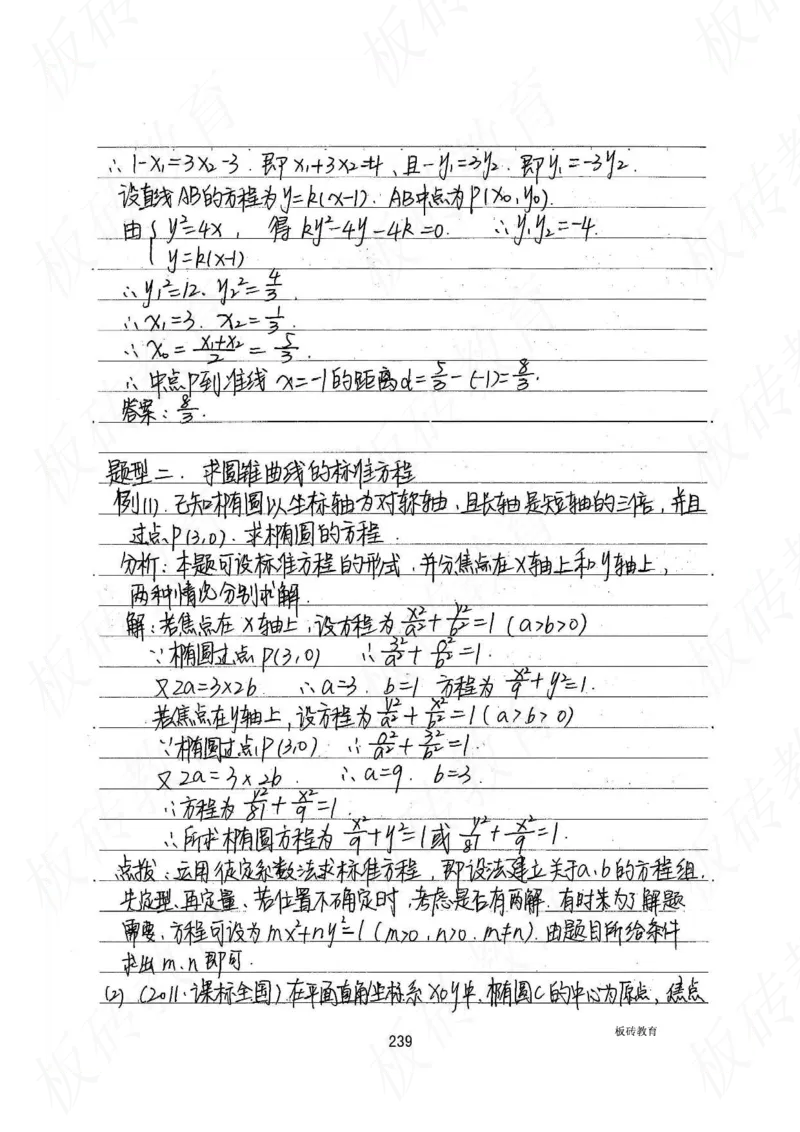 ∴ 1-x₁=3x₂-3. 即x₁+3x₂=4、且-y₁=3y₂. 即y₁=-3y₂.
设直线AB的方程为y=k(x-1). AB中点为P(x₀,y₀).
由{ y²=4x , 得 ky²-4y-4k=0. ∴y₁y₂=-4.
y=k(x-1)
∴y₁²=12、y₂²=4/3.
∴x₁=3. x₂=1/3.
∴x₀=(x₁+x₂)/2=5/3.
∴中点P到准线 x=-1的距离d=5/3-(-1)=8/3.
答案:8/3.
题型二. 求圆锥曲线的标准方程
例(1). 已知椭圆以坐标轴为对称轴、且长轴是短轴的三倍,并且
过点P(3,0). 求椭圆的方程.
分析:本题可设标准方程的形式,并分焦点在x轴上和y轴上,
两种情况分别求解.
解:若焦点在x轴上,设方程为x²/a²+y²/b²=1(a>b>0)
∵椭圆过点P(3,0) ∴3²/a²+0²/b²=1.
又2a=3×2b ∴a=3. b=1 方程为x²/9+y²=1.
若焦点在y轴上,设方程为y²/a²+x²/b²=1(a>b>0)
∵椭圆过点P(3,0) ∴0²/a²+3²/b²=1.
又2a=3×2b. ∴a=9. b=3.
∴方程为y²/81+x²/9=1
∴所求椭圆方程为x²/9+y²=1或y²/81+x²/9=1.
点拨:运用待定系数法求标准方程,即设法建立关于a、b的方程组.
先定型、再定量、若位置不确定时,考虑是否有两解、有时为了解题
需要、方程可设为mx²+ny²=1(m>0,n>0. m≠n).由题目所给条件
求出m、n即可.
(2) (2011·课标全国)在平面直角坐标系xoy中,椭圆C的中心为原点,焦点
板砖教育
239